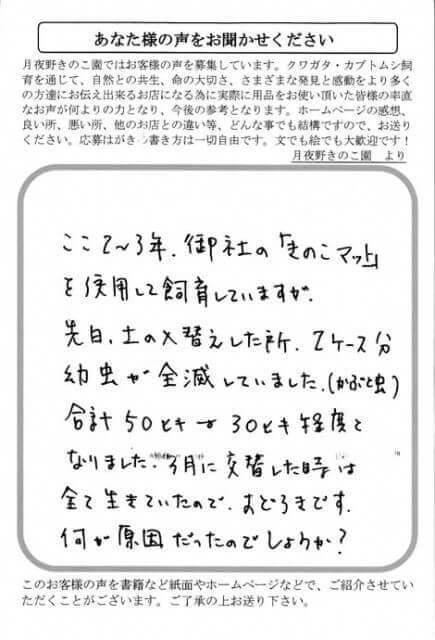 あなた様の声をお聞かせください
月夜野きのこ園ではお客様の声を募集しています。クワガタ・カブトムシ飼
育を通じて、自然との共生、命の大切さ、さまざまな発見と感動をより多く
の方達にお伝え出来るお店になる為に実際に用品をお使い頂いた皆様の率直
なお声が何よりの力となり、今後の参考となります。ホームページの感想、
良い所、悪い所、他のお店との違い等、どんな事でも結構ですので、お送り
ください。応募はがき 書き方は一切自由です。文でも絵でも大歓迎です！
月夜野きのこ園　より
ここ2～3年、御社の「きのこマット」
を使用して飼育していますが、
先日、土の入替えした所、2ケース分
幼虫が全滅していました。(かぶと虫)
合計50ヒキ→30ヒキ程度と
なりました。3月に交替した時は
全て生きていたので、おどろきです。
何が原因だったのでしょうか？
このお客様の声を書籍など紙面やホームページなどで、ご紹介させてい
ただくことがございます。ご了承の上お送り下さい。